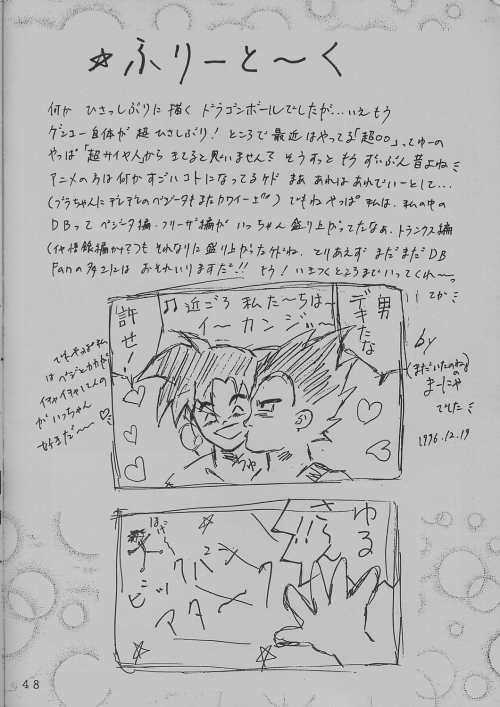 ☆ふりーと〜く
何か ひさっしぶりに 描く ドラゴンボールでしたが…いえもう
ゲンコー自体が超ひさしぶり! ところで最近はやってる「超○○」ってゆーの
やっぱ「超サイヤ人」から きてると思いません? そうすっと もう ずいぶん昔よね
アニメの方は何かすごいコトになってるケド まあ あれはあれでいーとして…
(ブラちゃんにデレデレのベジータもまたカワイー) でもね やっぱ 私は、私の中の
DBって ベジータ編・フリーザ編が いっちゃん盛り上がってたなぁ、トランクス編
も それなりに盛り上がったケドね、とりあえず まだまだDB
Fanの多さには おそれいりますだ!! もう! いきつくところまでいってくれ〜っ
てか
by
(まだいたのね)
まーにゃ
でした
1996.12.19
男
デキたな
♫近ごろ 私た〜ちは〜
イ〜カンジ〜
許せ!
ちゅ
でもやっぱ私
はベジとカカが
イチャイチャしてんの
がいっちゃん
好きだ〜〜♡
ゆる
さん!!
ビッ
アタ
48